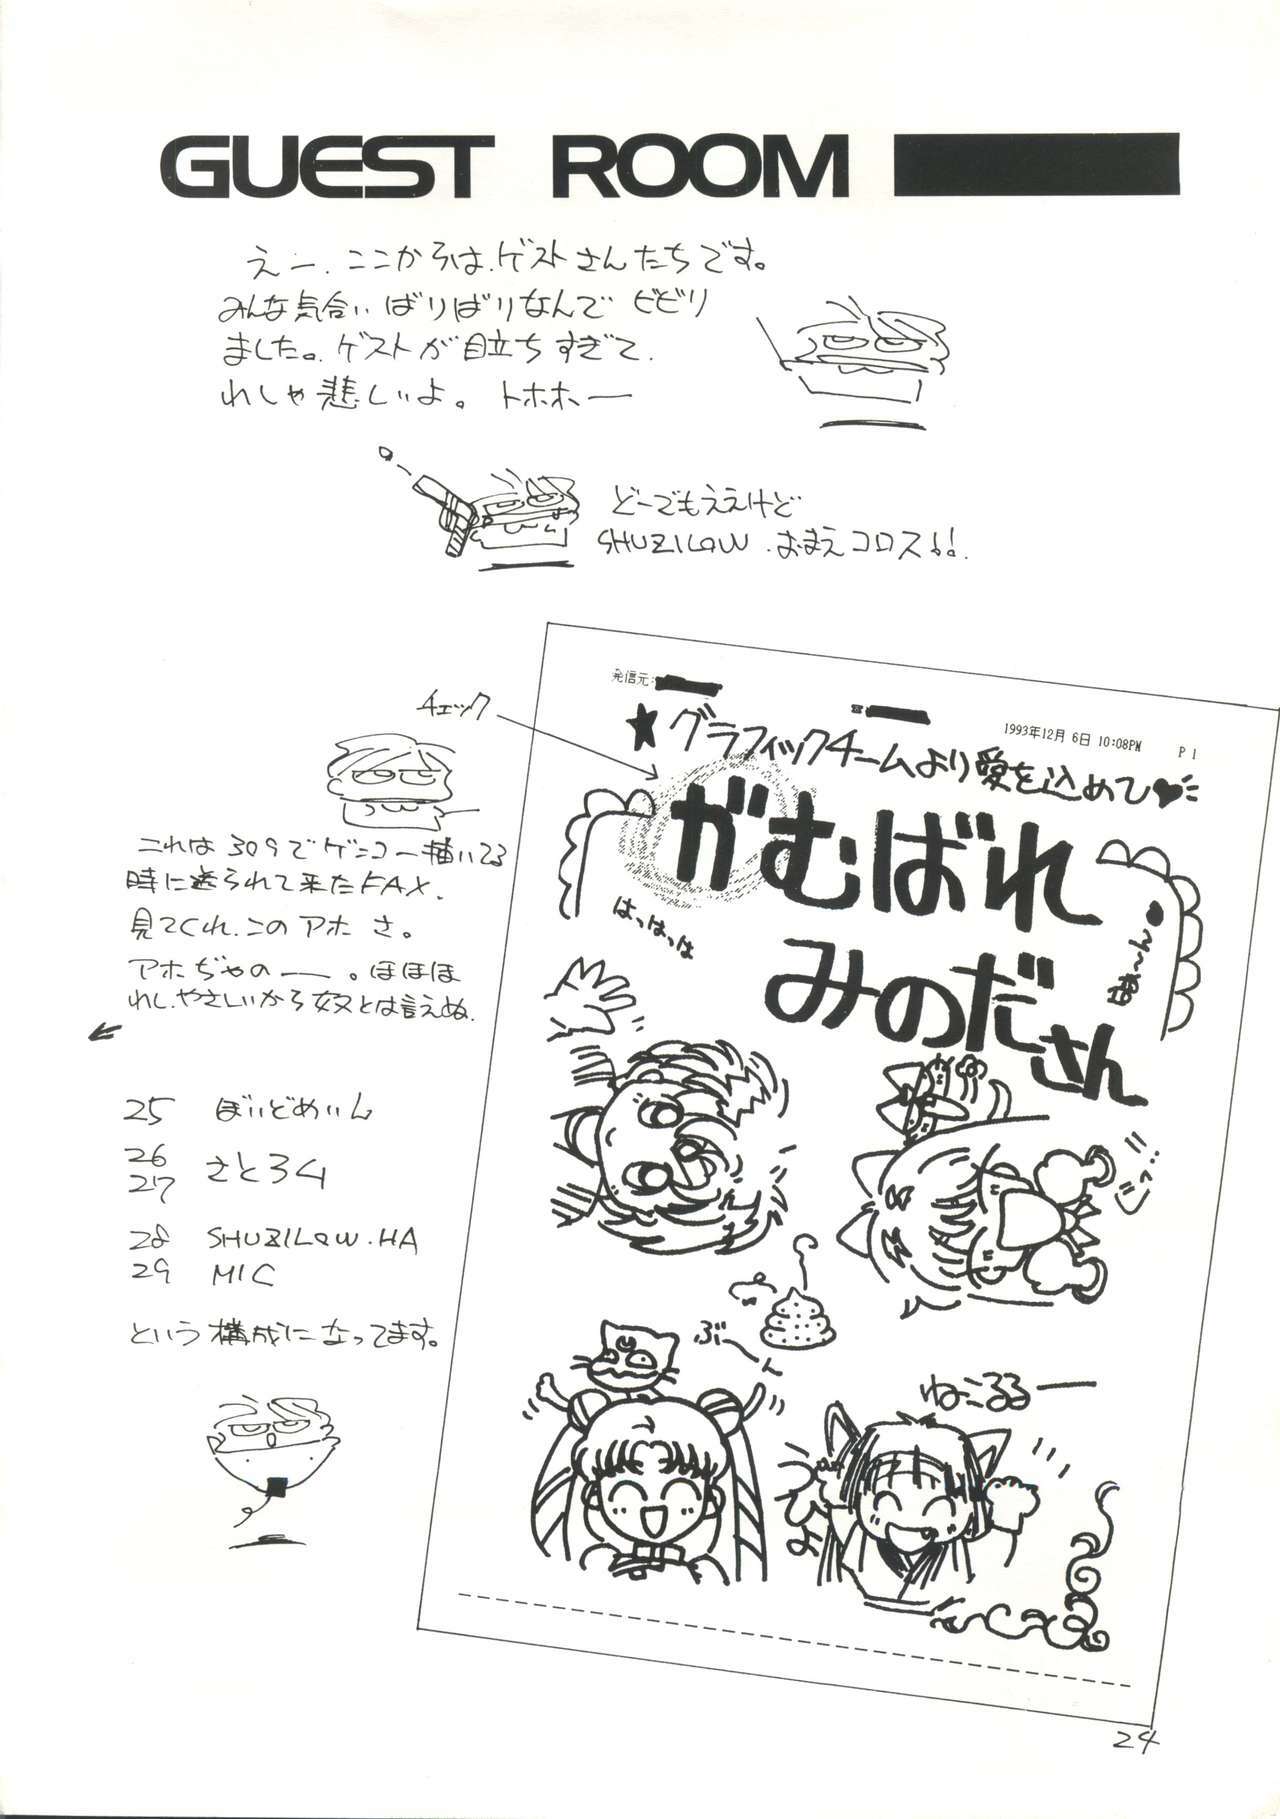 GUEST ROOM
えー、ここからは、ゲストさんたちです。
みんな気合いばりばりなんでビビリ
ました。ゲストが目立ちすぎて、
れしゃ悲しいよ。トホホー
どーでもええけど
SHUZILOW、おまえコロス!!
チェック
これは309でゲンコー描いてる
時に送られて来たFAX.
見てくれ、このアホさ。
アホぢゃのー。ほほほ
れし、やさしいから奴とは言えぬ.
25 ぼいどめいん
26
27 さとろく
28 SHUZILOW.HA
29 MIC
という構成になってます。
発信元:
1993年12月 6日 10:08PM P1
★グラフィックチームより愛を込めて♥
がむばれ
みのださん
はっはっは
あ〜ん♥
ぶーん
ねこるるー
24